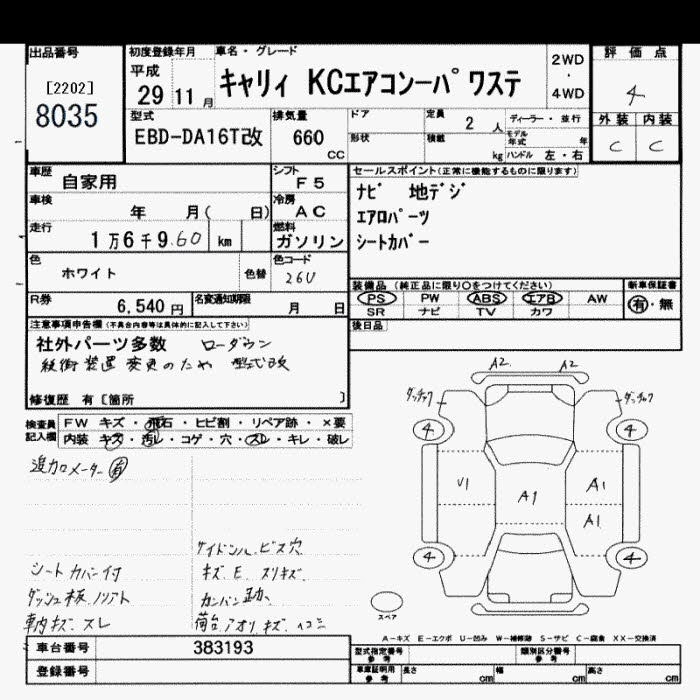 出品番号
[2202]
8035
初度登録年月
平成
29 11 月
車名・グレード
キャリィ KCエアコンーパワステ
2WD
・
4WD
評価点
4
型式
EBD-DA16T改
排気量
660
CC
ドア
形状
定員
2 人
積載
kg
ディーラー・並行
モデル年式 年
ハンドル 左・右
外装 内装
C C
車歴
自家用
シフト
F5
車検
年 月( 日)
冷房
AC
走行
1万6千9.60 km
燃料
ガソリン
色
ホワイト
色替
色コード
26U
R券
6,540 円
名変通知期限
月 日
セールスポイント(正常に機能するものに限ります)
ナビ 地デジ
エアロパーツ
シートカバー
装備品(純正品に限り○をつけてください)
PS PW ABS エアB AW
SR ナビ TV カワ
新車保証書
有・無
後日品
注意事項申告欄(不具合内容等は具体的に記入して下さい)
社外パーツ多数 ローダウン
緩衝装置 変更のため 型式改
修復歴 有 [箇所 ]
検査員
記入欄
FW キズ・飛石・ヒビ割・リペア跡・×要
内装 キズ・汚レ・コゲ・穴・スレ・キレ・破レ
追加メーター 有
シートカバー付
ダッシュ板、ノリアト
車内キズ、スレ
サイドシル、ビス穴
キズ、E、スリキズ
荷台、アオリ、キズ、ヘコミ
A2 A2
ダッチャク ダッチャク
4 4
U1 A1 A1
A1
4 4
スペア
A-キズ E-エクボ U-凹み W-補修跡 S-サビ C-腐食 XX-交換済
車台番号 383193
登録番号
型式指定番号
参考
類別区分番号
参考
車庫証明用
参考
長さ cm 幅 cm 高さ cm